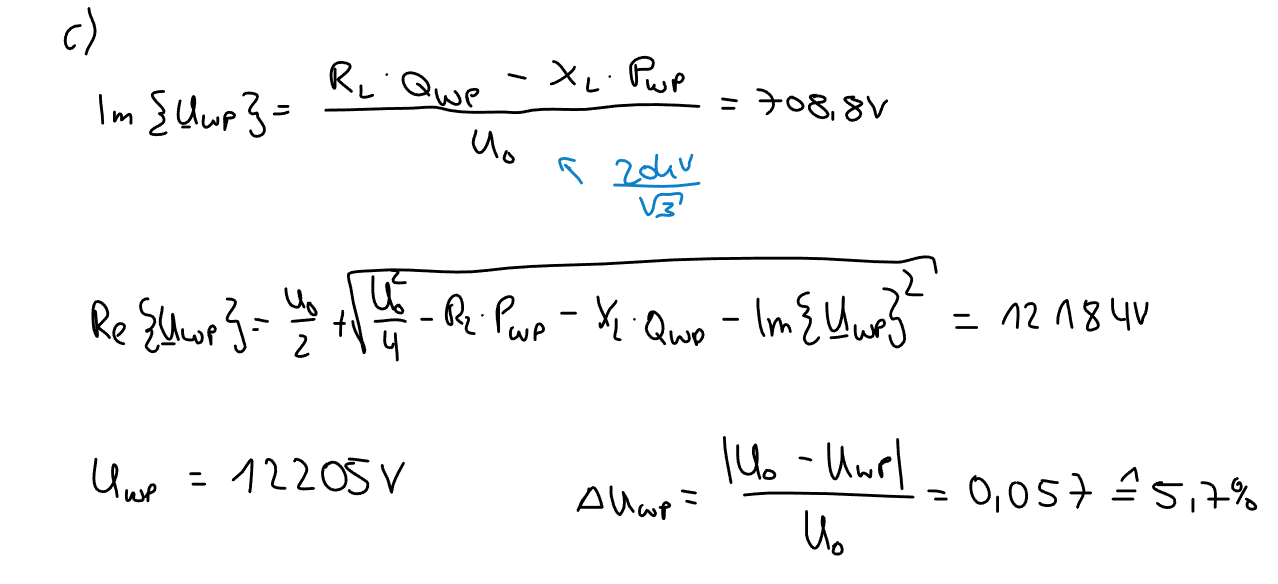 c)
Im {U̲_WP} = (R_L · Q_WP − X_L · P_WP) / U_0 = 708,8V
↖ 20kV / √3
Re {U̲_WP} = U_0/2 + √(U_0²/4 − R_L · P_WP − X_L · Q_WP − Im{U̲_WP}²) = 12184V
U_WP = 12205V
ΔU_WP = |U_0 − U_WP| / U_0 = 0,057 ≙ 5,7%